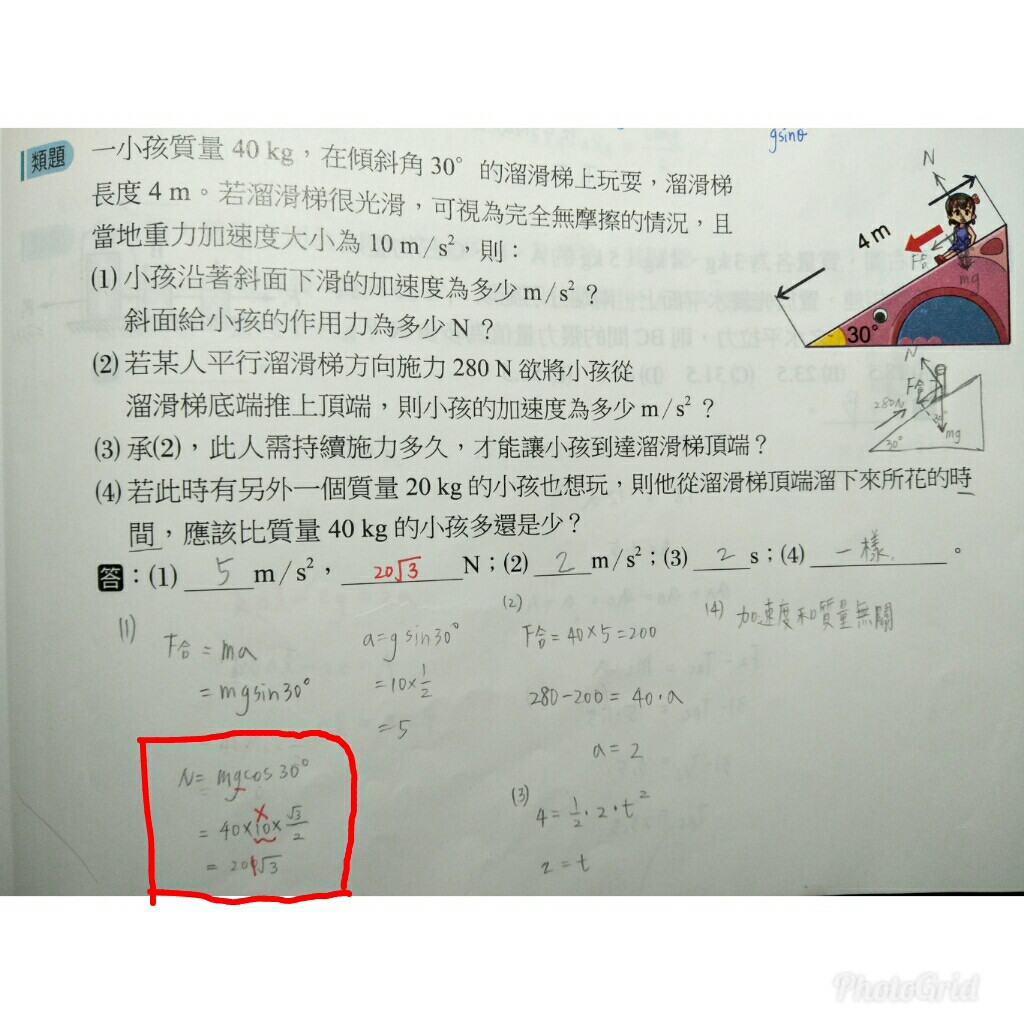 gsinθ
類題
一小孩質量 40 kg，在傾斜角 30° 的溜滑梯上玩耍，溜滑梯
長度 4 m。若溜滑梯很光滑，可視為完全無摩擦的情況，且
當地重力加速度大小為 10 m/s²，則：
(1) 小孩沿著斜面下滑的加速度為多少 m/s²？
斜面給小孩的作用力為多少 N？
(2) 若某人平行溜滑梯方向施力 280 N 欲將小孩從
溜滑梯底端推上頂端，則小孩的加速度為多少 m/s²？
(3) 承(2)，此人需持續施力多久，才能讓小孩到達溜滑梯頂端？
(4) 若此時有另外一個質量 20 kg 的小孩也想玩，則他從溜滑梯頂端溜下來所花的時
間，應該比質量 40 kg 的小孩多還是少？
N
4 m
F合
mg
30°
N
F合
280N
30°
mg
答：(1) 5 m/s²，20√3 N；(2) 2 m/s²；(3) 2 s；(4) 一樣。
(1)
F合 = ma
= mgsin30°
a = g sin30°
= 10×1/2
= 5
N = mgcos30°
= 40×10×√3/2
= 200√3
(2)
F合 = 40×5 = 200
280-200 = 40·a
a = 2
(3)
4 = 1/2·2·t²
2 = t
(4) 加速度和質量無關
PhotoGrid